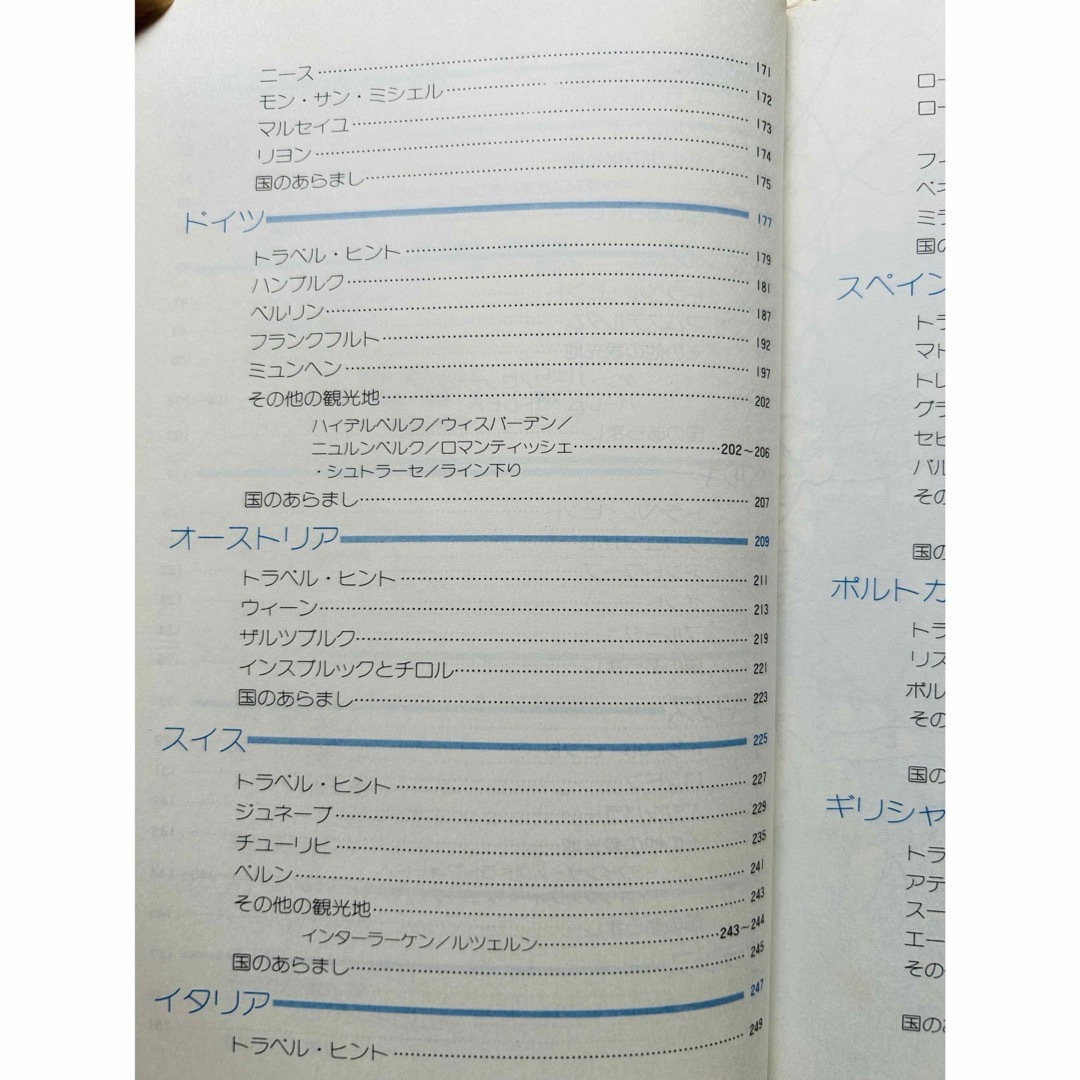 ニース 171
モン・サン・ミシェル 172
マルセイユ 173
リヨン 174
国のあらまし 175
ドイツ 177
トラベル・ヒント 179
ハンブルク 181
ベルリン 187
フランクフルト 192
ミュンヘン 197
その他の観光地 202
ハイデルベルク／ウィスバーデン／
ニュルンベルク／ロマンティッシェ 202〜206
・シュトラーセ／ライン下り
国のあらまし 207
オーストリア 209
トラベル・ヒント 211
ウィーン 213
ザルツブルク 219
インスブルックとチロル 221
国のあらまし 223
スイス 225
トラベル・ヒント 227
ジュネーブ 229
チューリヒ 235
ベルン 241
その他の観光地 243
インターラーケン／ルツェルン 243〜244
国のあらまし 245
イタリア 247
トラベル・ヒント 249
ロー
ロー
フー
ミラ
国の
スペイン
トラ
マド
トレ
グラ
セビ
バル
その
国の
ポルトガ
トラ
リス
ポル
その
国の
ギリシャ
トラ
アテ
スー
エー
その
国の